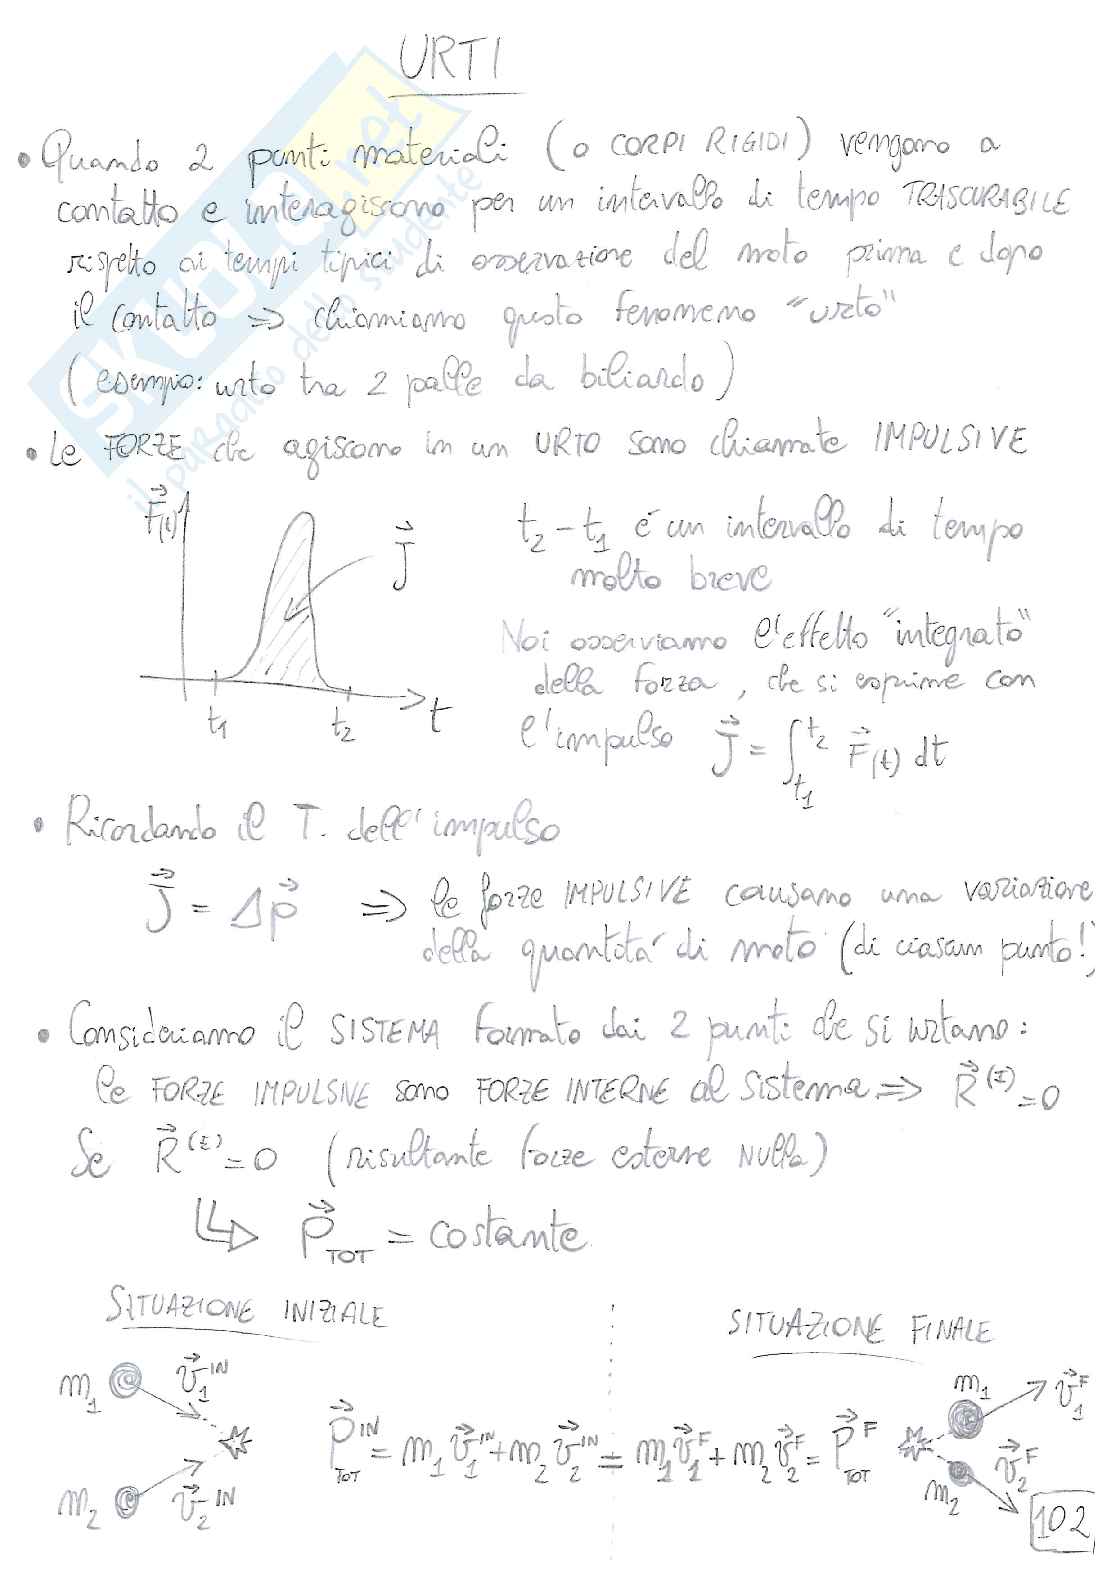 URTI
• Quando 2 punti materiali (o CORPI RIGIDI) vengono a
contatto e interagiscono per un intervallo di tempo TRASCURABILE
rispetto ai tempi tipici di osservazione del moto prima e dopo
il contatto ⇒ chiamiamo questo fenomeno "urto"
(esempio: urto tra 2 palle da biliardo)
• Le FORZE che agiscono in un URTO sono chiamate IMPULSIVE
F⃗(t)
J⃗
t₁ t₂ t
t₂ - t₁ é un intervallo di tempo
molto breve
Noi osserviamo l'effetto "integrato"
della forza, che si esprime con
l'impulso J⃗ = ∫_{t₁}^{t₂} F⃗(t) dt
• Ricordando il T. dell'impulso
J⃗ = Δp⃗ ⇒ le forze IMPULSIVE causano una variazione
della quantitá di moto (di ciascun punto!)
• Consideriamo il SISTEMA formato dai 2 punti che si urtano:
le FORZE IMPULSIVE sono FORZE INTERNE al sistema ⇒ R⃗^(I) = 0
Se R⃗^(E) = 0 (risultante forze esterne NULLA)
P⃗_TOT = costante
SITUAZIONE INIZIALE
SITUAZIONE FINALE
m₁ v⃗₁^IN
m₂ v⃗₂^IN
P⃗_TOT^IN = m₁v⃗₁^IN + m₂v⃗₂^IN = m₁v⃗₁^F + m₂v⃗₂^F = P⃗_TOT^F
m₁ v⃗₁^F
m₂ v⃗₂^F
102
SKUOLA.net
il paradiso dello studente